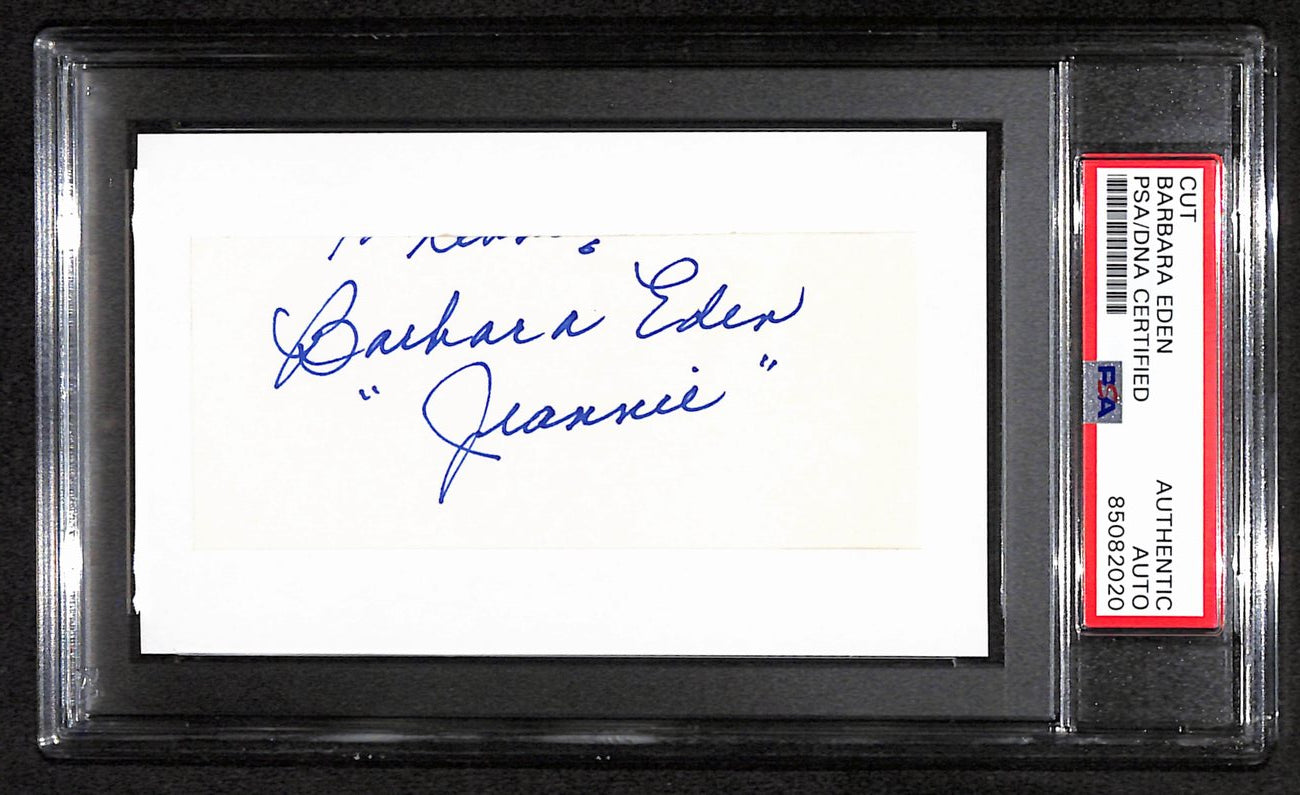 Barbara Eden
"Jeannie"
CUT
BARBARA EDEN
PSA/DNA CERTIFIED
PSA
AUTHENTIC
AUTO
85082020